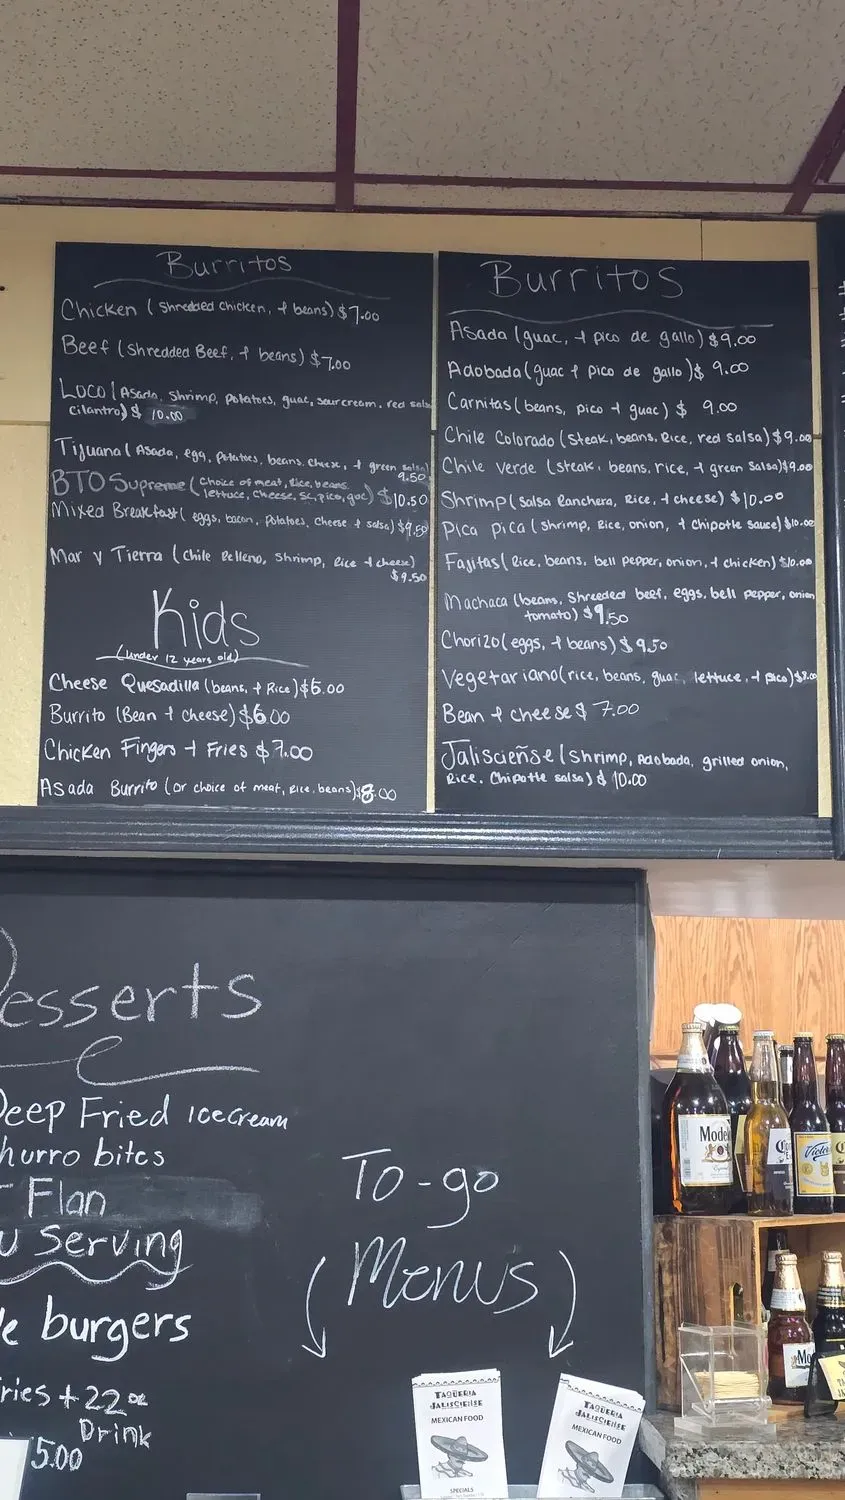 Burritos
Chicken (Shredded Chicken, + beans) $7.00
Beef (Shredded Beef, + beans) $7.00
Loco (Asada, Shrimp, potatoes, guac, sour cream, red salsa
cilantro) $ 10.00
Tijuana (Asada, egg, potatoes, beans, cheese, + green salsa)
9.50
BTO Supreme (Choice of meat, Rice, beans,
lettuce, cheese, sc, pico, guc) $10.50
Mixed Breakfast (eggs, bacon, potatoes, cheese + salsa) $9.50
Mar y Tierra (Chile Relleno, Shrimp, Rice + cheese)
$9.50
Kids
(Under 12 years old)
Cheese Quesadilla (beans, + Rice) $6.00
Burrito (Bean + Cheese) $6.00
Chicken Fingers + Fries $7.00
Asada Burrito (or choice of meat, Rice, beans) $8.00
Burritos
Asada (guac, + pico de gallo) $9.00
Adobada (guac + pico de gallo) $ 9.00
Carnitas (beans, pico + guac) $ 9.00
Chile Colorado (Steak, beans, Rice, red salsa) $9.00
Chile Verde (Steak, beans, rice, + green Salsa) $9.00
Shrimp (Salsa Ranchera, Rice, + cheese) $10.00
Pica pica (shrimp, Rice, onion, + Chipotle sauce) $10.00
Fajitas (Rice, beans, bell pepper, onion, + chicken) $10.00
Machaca (beans, Shreeded beef, eggs, bell pepper, onion
tomato) $9.50
Chorizo (eggs, + beans) $9.50
Vegetariano (rice, beans, guac, lettuce, + pico) $8.00
Bean + cheese $ 7.00
Jaliscieñse (Shrimp, Adobada, grilled onion,
Rice, Chipotle salsa) $ 10.00
esserts
Deep Fried icecream
hurro bites
Flan
Serving
burgers
ries + 22oz
Drink
5.00
To-go
Menu's
TAQUERIA
JALISCIENSE
MEXICAN FOOD
SPECIALS
TAQUERIA
JALISCIENSE
MEXICAN FOOD
Modelo
Victoria